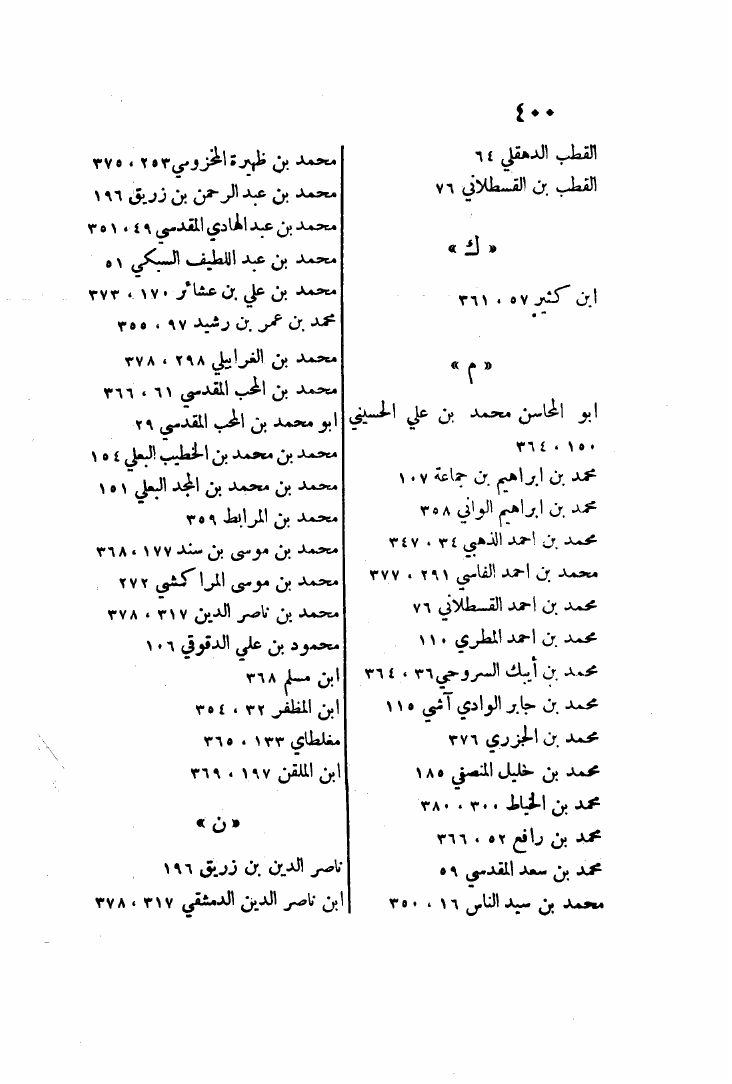 ٤٠٠
القطب الدهقلي ٦٤
القطب بن القسطلاني ٧٦
« ك »
ابن كثير ٥٧ ، ٣٦١
« م »
ابو المحاسن محمد بن علي الحسيني
١٥٠ ، ٣٦٤
محمد بن ابراهيم بن جماعة ١٠٧
محمد بن ابراهيم الواني ٣٥٨
محمد بن احمد الذهبي ٣٤ ، ٣٤٧
محمد بن احمد الفاسي ٢٩١ ، ٣٧٧
محمد بن احمد القسطلاني ٧٦
محمد بن احمد المطري ١١٠
محمد بن أيبك السروجي ٣٦ ، ٣٦٤
محمد بن جابر الوادي آشي ١١٥
محمد بن الجزري ٣٧٦
محمد بن خليل المنصفي ١٨٥
محمد بن الخياط ٣٠٠ ، ٣٨٠
محمد بن رافع ٥٢ ، ٣٦٦
محمد بن سعد المقدسي ٥٩
محمد بن سيد الناس ١٦ ، ٣٥٠
محمد بن ظهيرة المخزومي ٢٥٣ ، ٣٧٥
محمد بن عبد الرحمن بن زريق ١٩٦
محمد بن عبد الهادي المقدسي ٤٩ ، ٣٥١
محمد بن عبد اللطيف السبكي ٥١
محمد بن علي بن عشائر ١٧٠ ، ٣٧٣
محمد بن عمر بن رشيد ٩٧ ، ٣٥٥
محمد بن الغرابيلي ٢٩٨ ، ٣٧٨
محمد بن المحب المقدسي ٦١ ، ٣٦٦
ابو محمد بن المحب المقدسي ٢٩
محمد بن محمد بن الخطيب البعلي ١٥٤
محمد بن محمد بن المجد البعلي ١٥١
محمد بن المرابط ٣٥٩
محمد بن موسى بن سند ١٧٧ ، ٣٦٨
محمد بن موسى المراكشي ٢٧٢
محمد بن ناصر الدين ٣١٧ ، ٣٧٨
محمود بن علي الدقوقي ١٠٦
ابن مسلم ٣٦٨
ابن المظفر ٣٢ ، ٣٥٤
مغلطاي ١٣٣ ، ٣٦٥
ابن الملقن ١٩٧ ، ٣٦٩
« ن »
ناصر الدين بن زريق ١٩٦
ابن ناصر الدين الدمشقي ٣١٧ ، ٣٧٨